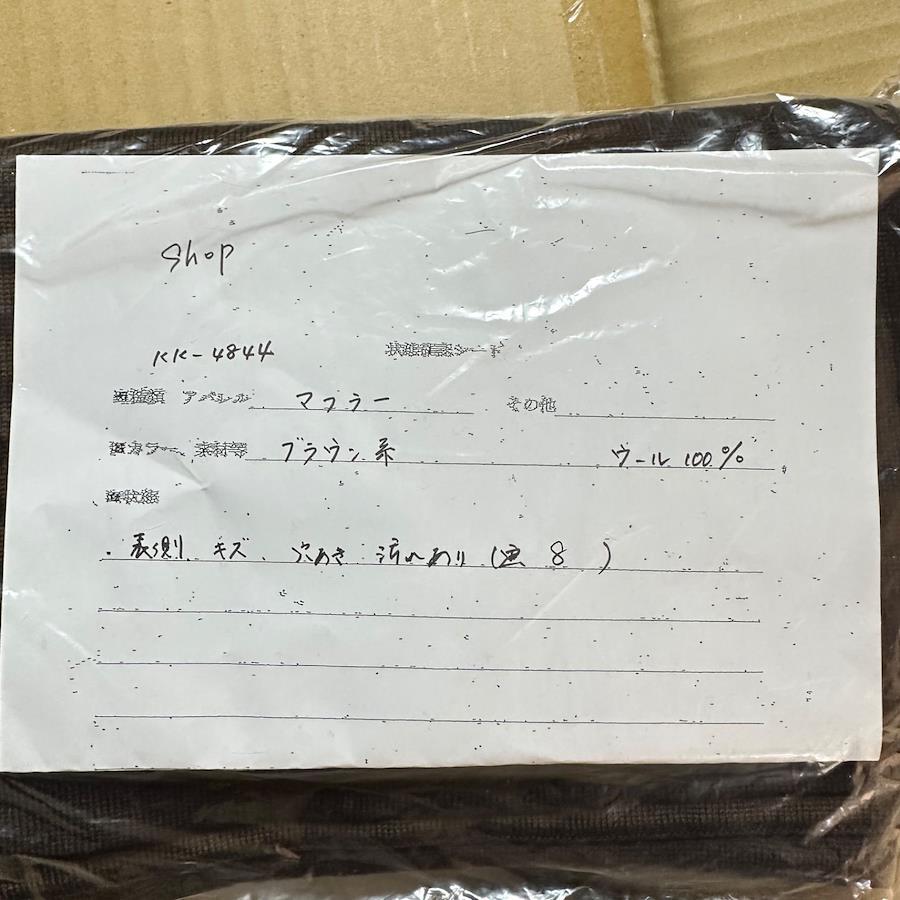 Shop
KK-4844
状態確認シート
種類 アパレル マフラー その他
カラー、素材等 ブラウン系 ウール 100%
状態
・表側 キズ、穴あき 汚れあり (画 8 )